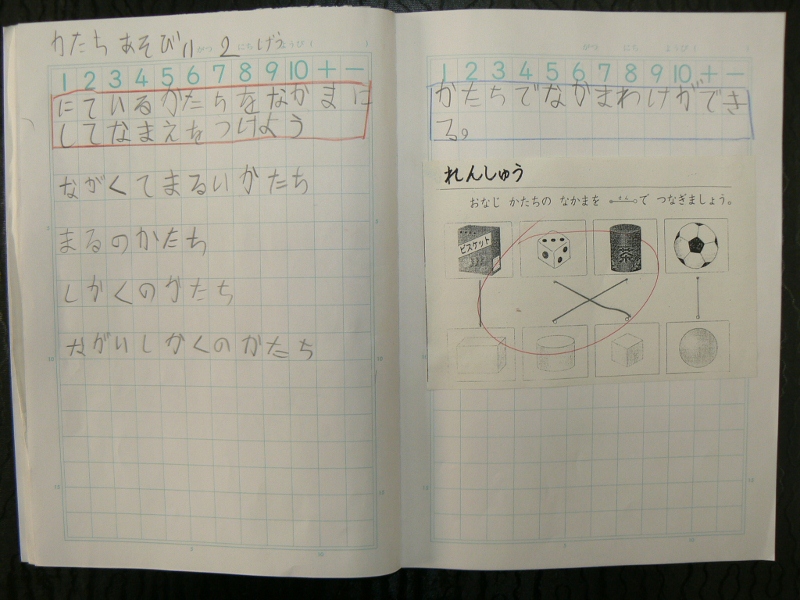 かたちあそび 11がつ 2にち げつようび
1 2 3 4 5 6 7 8 9 10 + −
にているかたちをなかまに
してなまえをつけよう
ながくてまるいかたち
まるのかたち
しかくのかたち
ながいしかくのかたち
がつ にち ようび
1 2 3 4 5 6 7 8 9 10 + −
かたちでなかまわけができ
る。
れんしゅう
おなじ かたちの なかまを せんで つなぎましょう。
ビスケット
茶